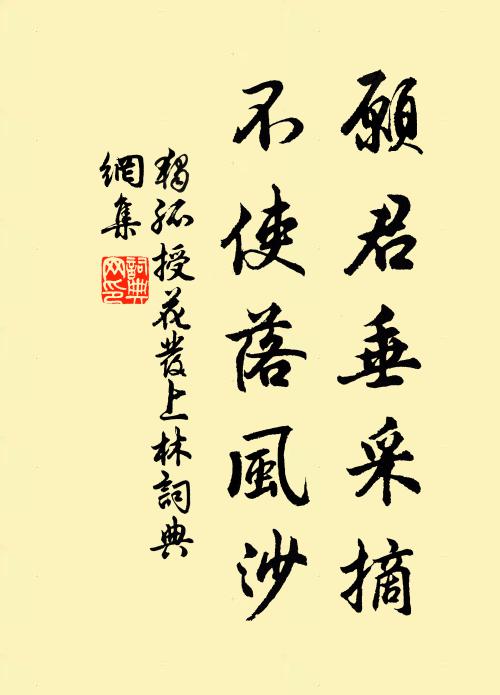 願君垂采摘
不使落風沙
獨孤授花發上林詞典
網集
詞典
网印